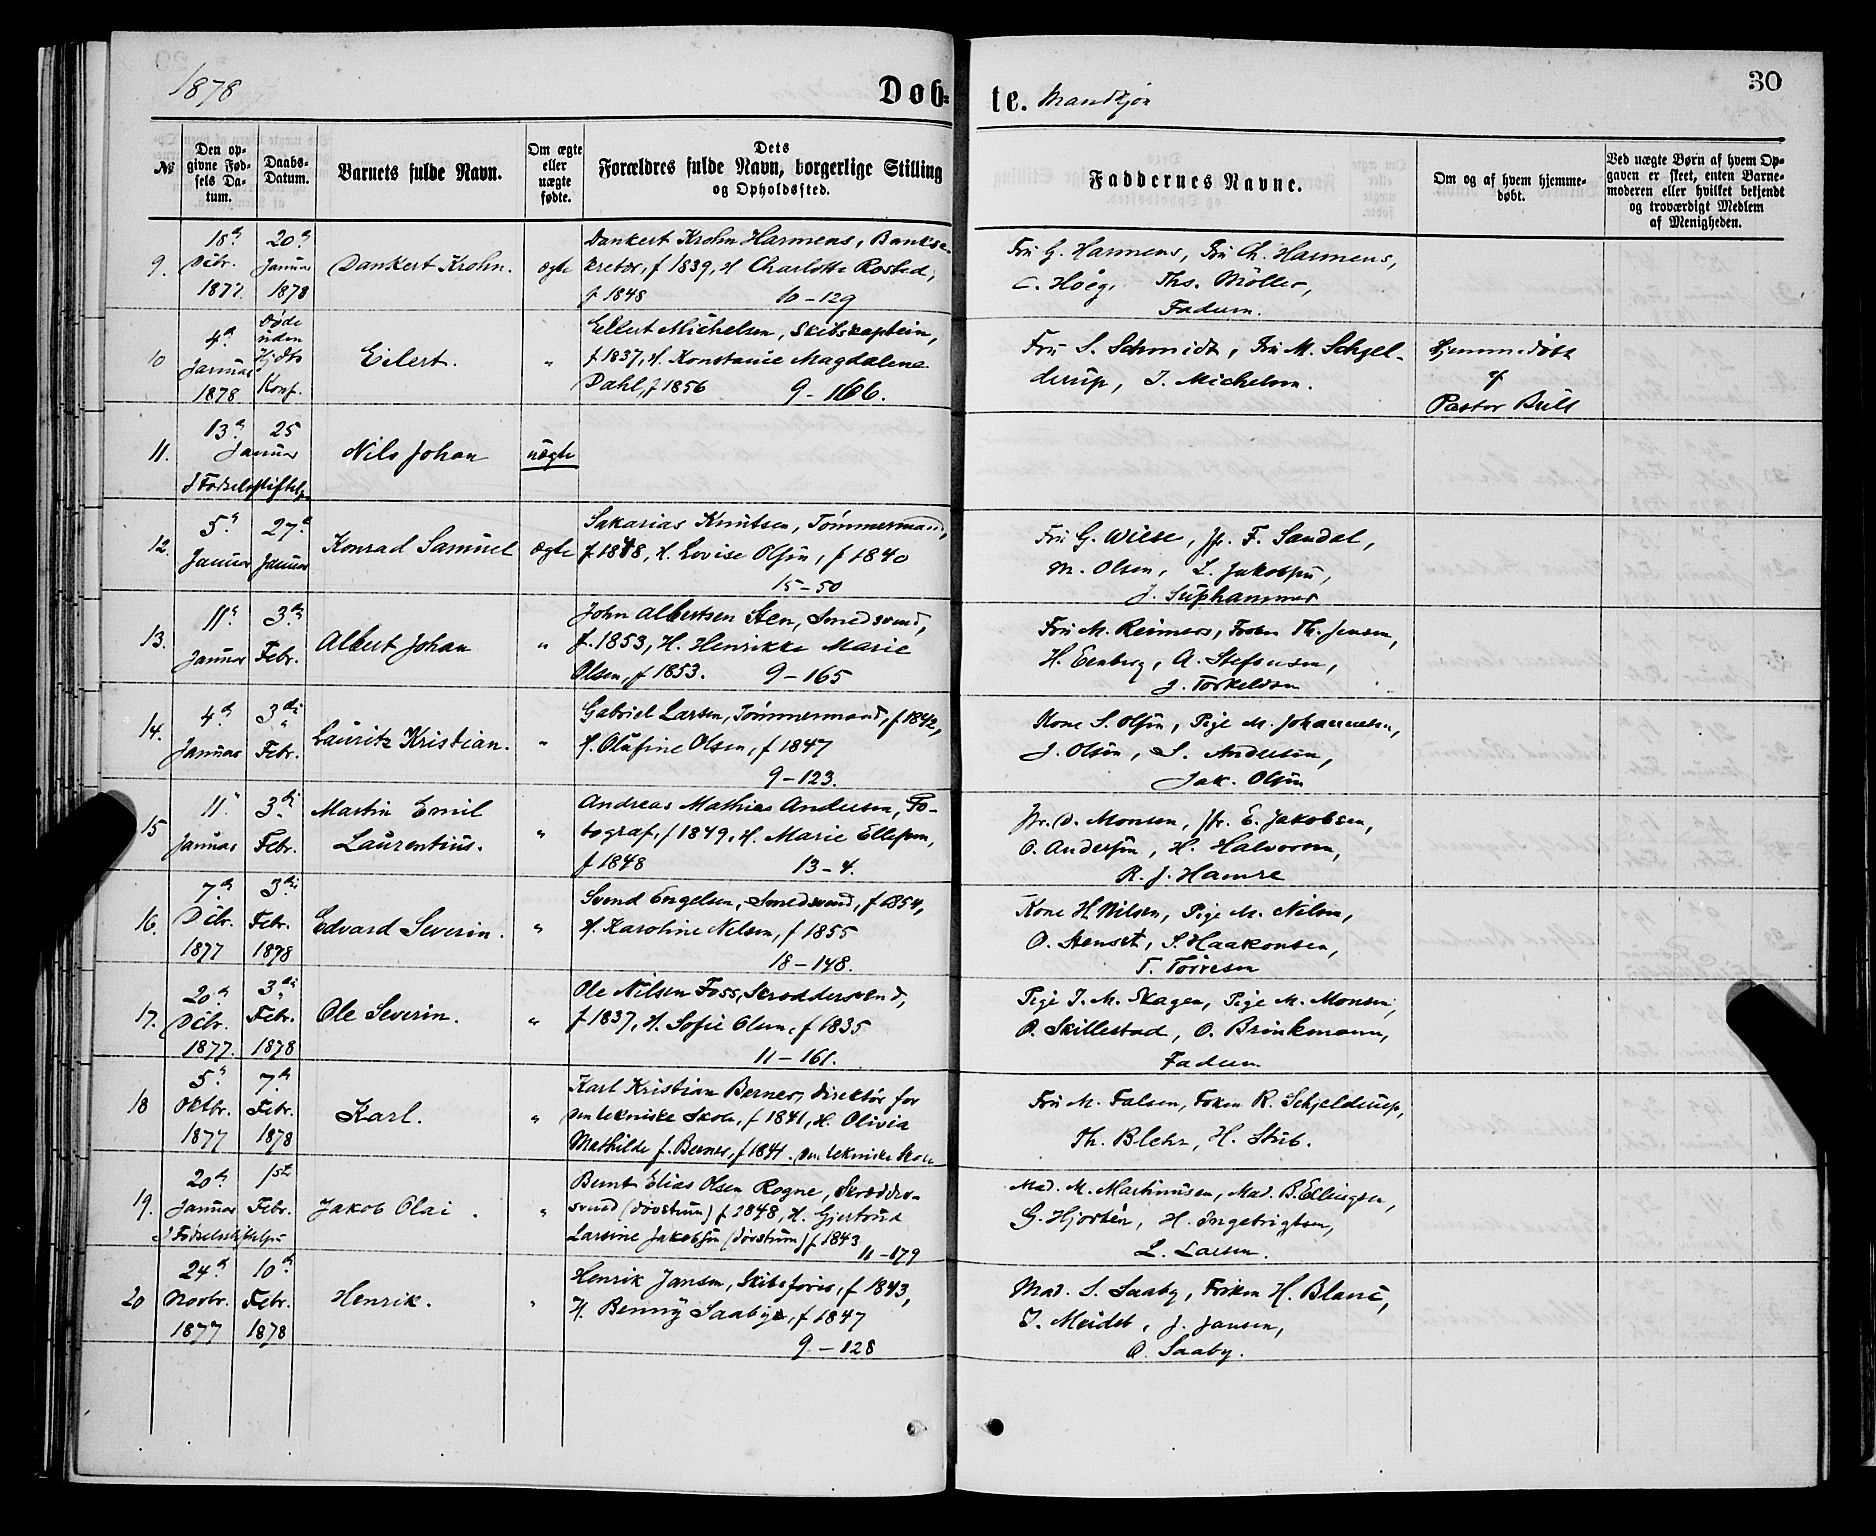 1878
Døb=
te. Mandkjøn
30
№
Den op-
givne Fød-
sels Da-
tum.
Daabs-
Datum.
Barnets fulde Navn.
Om ægte
eller
uægte
fødte.
Dets
Forældres fulde Navn, borgerlige Stilling
og Opholdssted.
Faddernes Navne.
Om og af hvem hjemme-
døbt.
Ved uægte Børn af hvem Op-
gaven er skeet, enten Barne-
moderen eller hvilket bekjendt
og troværdigt Medlem
af Menigheden.
9.
18de
Dcbr.
1877.
20de
Januar
1878
Dankert Krohn.
ægte
Dankert Krohn Harmens, Bankse-
kretær, f 1839, H Charlotte Rosted,
f 1848 10-129
Fru G. Harmens, Fru Ch. Harmens,
C. Höeg, Ths. Möller,
Faderen.
10
4de
Januar
1878
Døde
uden
Hjdbs
Konf.
Eilert.
"
Eilert Michelsen, Skibskaptein,
f 1837, H. Konstance Magdalena
Dahl, f 1856 9-166.
Fru S. Schmidt, Fru M. Schjel-
derup, J. Michelsen.
Hjemmedöbt
af
Pastor Bull
11.
13de
25
Januar
I Fødselsstiftelsen
Nils Johan
uægte
12.
5te
Januar
27de
Januar
Konrad Samuel
ægte
Sakarias Knutsen, Tömmermand,
f. 1848, H. Lovise Olsen, f 1840
15-50
Fru G. Wiese, Jfr. F. Sandal,
M. Olsen, L. Jakobsen,
J. Suphammer
13.
11te
Januar
3die
Febr.
Albert Johan
"
John Albertsen Sten, Smedsvend,
f. 1853, H. Henrikke Marie
Olsen, f 1853. 9-165
Fru M. Reimers, Frøken Th. Jensen,
H. Eenberg, A. Stefensen,
J. Torkeldsen
14.
4de
Januar
3die
Febr.
Lauritz Kristian.
"
Gabriel Larsen, Tömmermand, f 1842,
H. Olufine Olsen, f 1847
9-123.
Kone S. Olsen, Pige M. Johannesen,
J. Olsen, S. Andersen,
Jak. Olsen
15
11.
Januar
3die
Febr.
Martin Emil
Laurentius.
"
Andreas Mathias Andersen, Fo-
tograf, f 1849, H. Marie Ellefsen,
f 1848 13-4.
Jfr. D. Monsen, Jfr. E. Jakobsen,
O. Andersen, H. Halvorsen,
R. J. Hamre
16.
7de
Dcbr.
1877
3die
Febr.
1878
Edvard Severin.
"
Svend Engelsen, Smedsvend, f 1854,
H. Karoline Nilsen, f 1855
18-148.
Kone H. Nilsen, Pige M. Nilsen,
O. Stenset, S. Haakonsen,
T. Torresen
17.
20de
Dcbr.
1877.
3die
Febr.
1878
Ole Severin.
"
Ole Nilsen Foss, Skræddersvend,
f 1837, H. Sofie Olsen, f 1835
11-161.
Pige J. M. Skagen, Pige M. Monsen,
O. Skillestad, O. Brinkmann,
Faderen
18
5te
Oktbr.
1877
7de
Febr.
1878
Karl.
"
Karl Kristian Berner, Direktør for
den tekniske Skole, f 1841, H. Olivia
Mathilde f. Berner, f 1841. Den tekniske Skole
Fru M. Falsen, Frøken R. Schjelderup,
Th. Blehr, H. Stub.
19.
20de
Januar
1ste
Febr.
I Fødselsstiftelsen
Jakob Olai.
"
Bernt Elias Olsen Rogne, Skrædder-
svend (døvstum) f 1848, H. Gjertrud
Larsine Jakobsen (døvstum) f 1843
11-179
Mad. M. Martinusen, Mad. B. Ellingsen,
G. Hjortén, H. Ingebrigtsen,
L. Larsen.
20
24de
Novbr.
1877
10de
Febr.
1878
Henrik.
"
Henrik Jansen, Skibsförer, f 1843,
H. Benny Saabye, f 1847
9-128
Mad. S. Saaby, Frøken H. Blanc,
J. Meidel, J. Jansen,
O. Saaby.